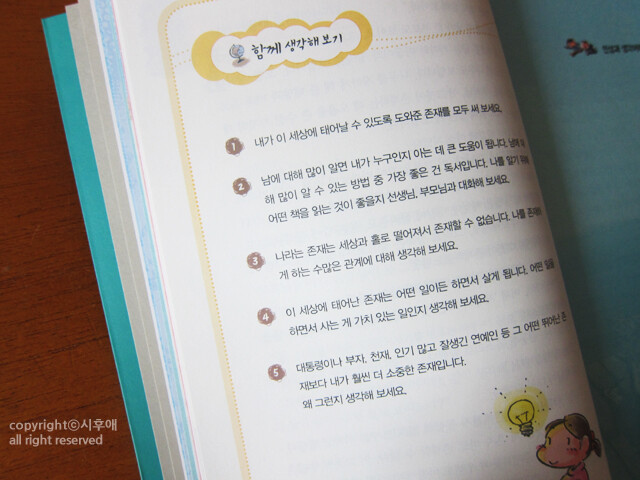 함께 생각해 보기
1 내가 이 세상에 태어날 수 있도록 도와준 존재를 모두 써 보세요.
2 남에 대해 많이 알면 내가 누구인지 아는 데 큰 도움이 됩니다. 남에
해 많이 알 수 있는 방법 중 가장 좋은 건 독서입니다. 나를 알기 위해
어떤 책을 읽는 것이 좋을지 선생님, 부모님과 대화해 보세요.
3 나라는 존재는 세상과 홀로 떨어져서 존재할 수 없습니다. 나를 존재하
게 하는 수많은 관계에 대해 생각해 보세요.
4 이 세상에 태어난 존재는 어떤 일이든 하면서 살게 됩니다. 어떤 일을
하면서 사는 게 가치 있는 일인지 생각해 보세요.
5 대통령이나 부자, 천재, 인기 많고 잘생긴 연예인 등 그 어떤 뛰어난 존
재보다 내가 훨씬 더 소중한 존재입니다.
왜 그런지 생각해 보세요.
copyrightⓒ시후애
all right reserved